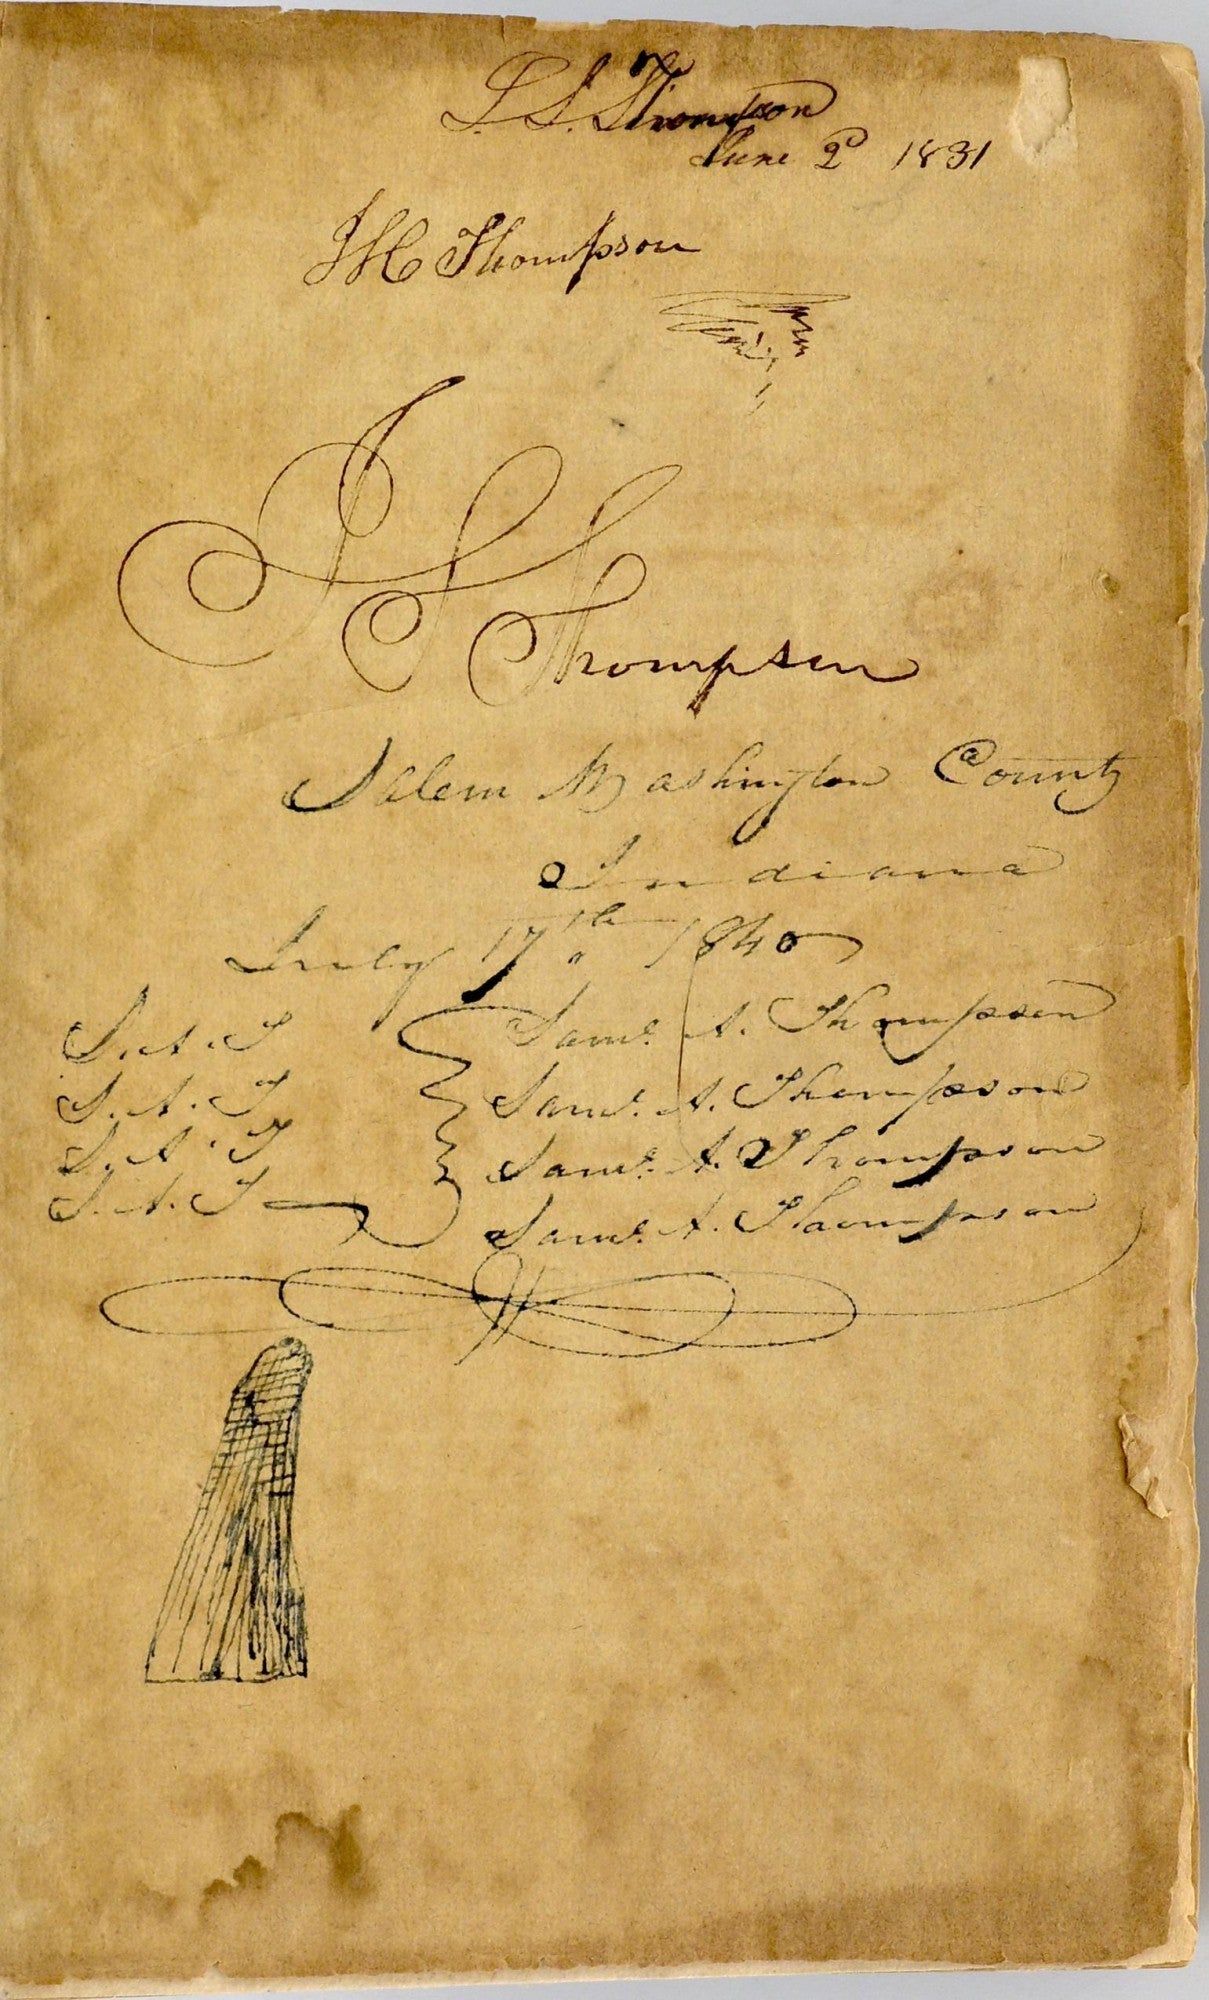 L. S. Thompson
June 2d 1831
JH Thompson
J S Thompson
Salem Washington County
Indiana
July 17th 1840
S. A. T Saml. A. Thompson
S. A. T Saml. A. Thompson
S. A. T Saml. A. Thompson
S. A. T Saml. A. Thompson